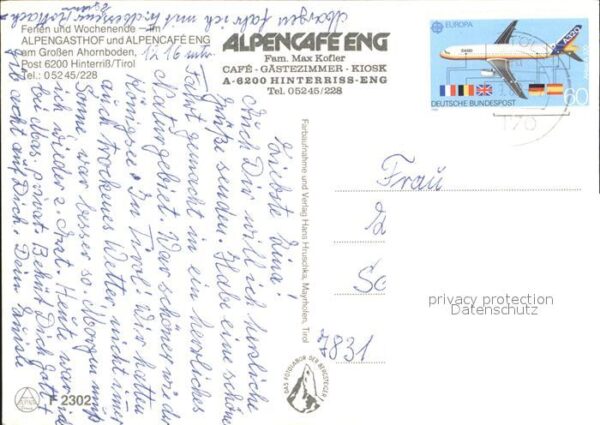 Ferien und Wochenende - im
ALPENGASTHOF und ALPENCAFÉ ENG
am Großen Ahornboden,
Post 6200 Hinterriß/Tirol
Tel.: 05245/228
ALPENCAFE ENG
Fam. Max Kofler
CAFÉ · GÄSTEZIMMER · KIOSK
A-6200 HINTERRISS-ENG
Tel. 05245/228
EUROPA
A320
60
DEUTSCHE BUNDESPOST
Liebste Lina!
Auch Dir will ich herzliche
Grüße senden. Habe eine schöne
Fahrt gemacht in ein herrliches
Naturgebiet. War schöner wie der
Königsee. In Tirol! Wir hatten
auch trockenes Wetter nicht nur
Sonne war besser so. Morgen muß
ich wieder z. Arzt. Heute war ich
bei Behüt Dich Gott +
gib acht auf Dich. Dein
Morgen fahr ich mit
12 16
Farbaufnahme und Verlag Hans Hruschka, Mayrhofen, Tirol
Frau
7831
DAS FOTOLABOR DER BERGSTEIGER
F 2302
privacy protection
Datenschutz